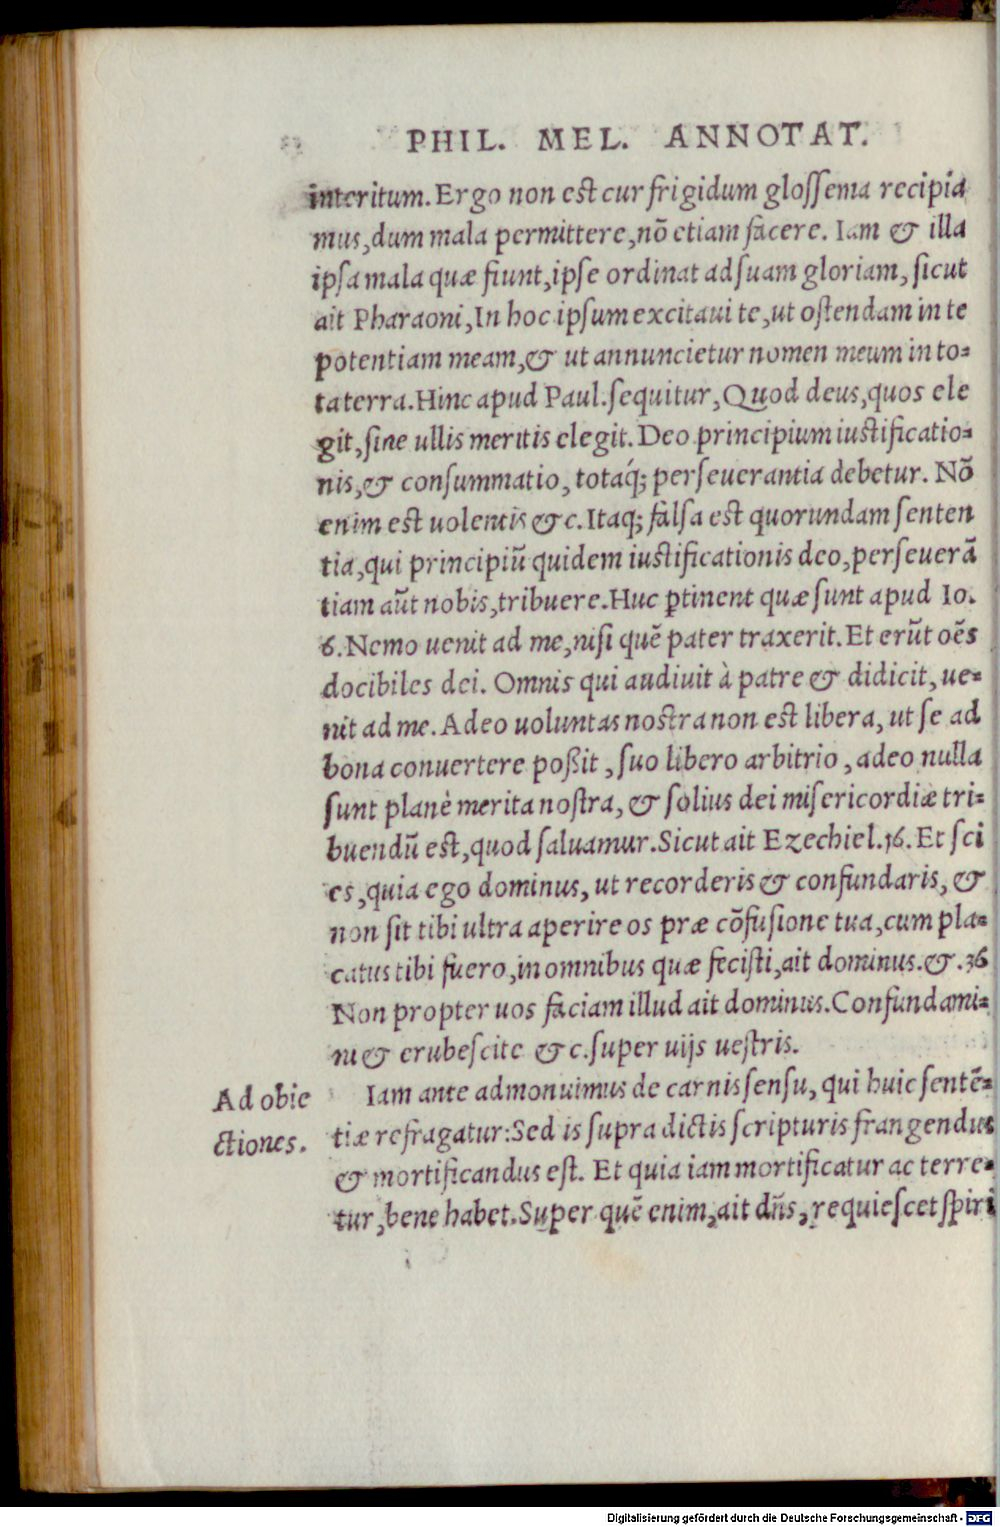 PHIL. MEL. ANNOTAT.
interitum. Ergo non est cur frigidum glossema recipia
mus, dum mala permittere, nō etiam facere. Iam & illa
ipsa mala quæ fiunt, ipse ordinat ad suam gloriam, sicut
ait Pharaoni, In hoc ipsum excitaui te, ut ostendam in te
potentiam meam, & ut annuncietur nomen meum in to=
ta terra. Hinc apud Paul. sequitur, Quod deus, quos ele
git, sine ullis meritis elegit. Deo principium iustificatio=
nis, & consummatio, totaq́; perseuerantia debetur. Nō
enim est uolentis &c. Itaq; falsa est quorundam senten
tia, qui principiū quidem iustificationis deo, perseuerā
tiam aūt nobis, tribuere. Huc ꝑtinent quæ sunt apud Io.
6. Nemo uenit ad me, nisi quē pater traxerit. Et erūt oēs
docibiles dei. Omnis qui audiuit à patre & didicit, ue=
nit ad me. Adeo uoluntas nostra non est libera, ut se ad
bona conuertere poßit, suo libero arbitrio, adeo nulla
sunt planè merita nostra, & solius dei misericordiæ tri=
buendū est, quod saluamur. Sicut ait Ezechiel. 16. Et sci
es, quia ego dominus, ut recorderis & confundaris, &
non sit tibi ultra aperire os præ cōfusione tua, cum pla=
catus tibi fuero, in omnibus quæ fecisti, ait dominus. &. 36
Non propter uos faciam illud ait dominus. Confundami=
ni & erubescite &c. super uijs uestris.
Ad obie
ctiones.
Iam ante admonuimus de carnis sensu, qui huic sentē=
tiæ refragatur: Sed is supra dictis scripturis frangendus
& mortificandus est. Et quia iam mortificatur ac terre=
tur, bene habet. Super quē enim, ait dn̄s, requiescet spiri
Digitalisierung gefördert durch die Deutsche Forschungsgemeinschaft - DFG